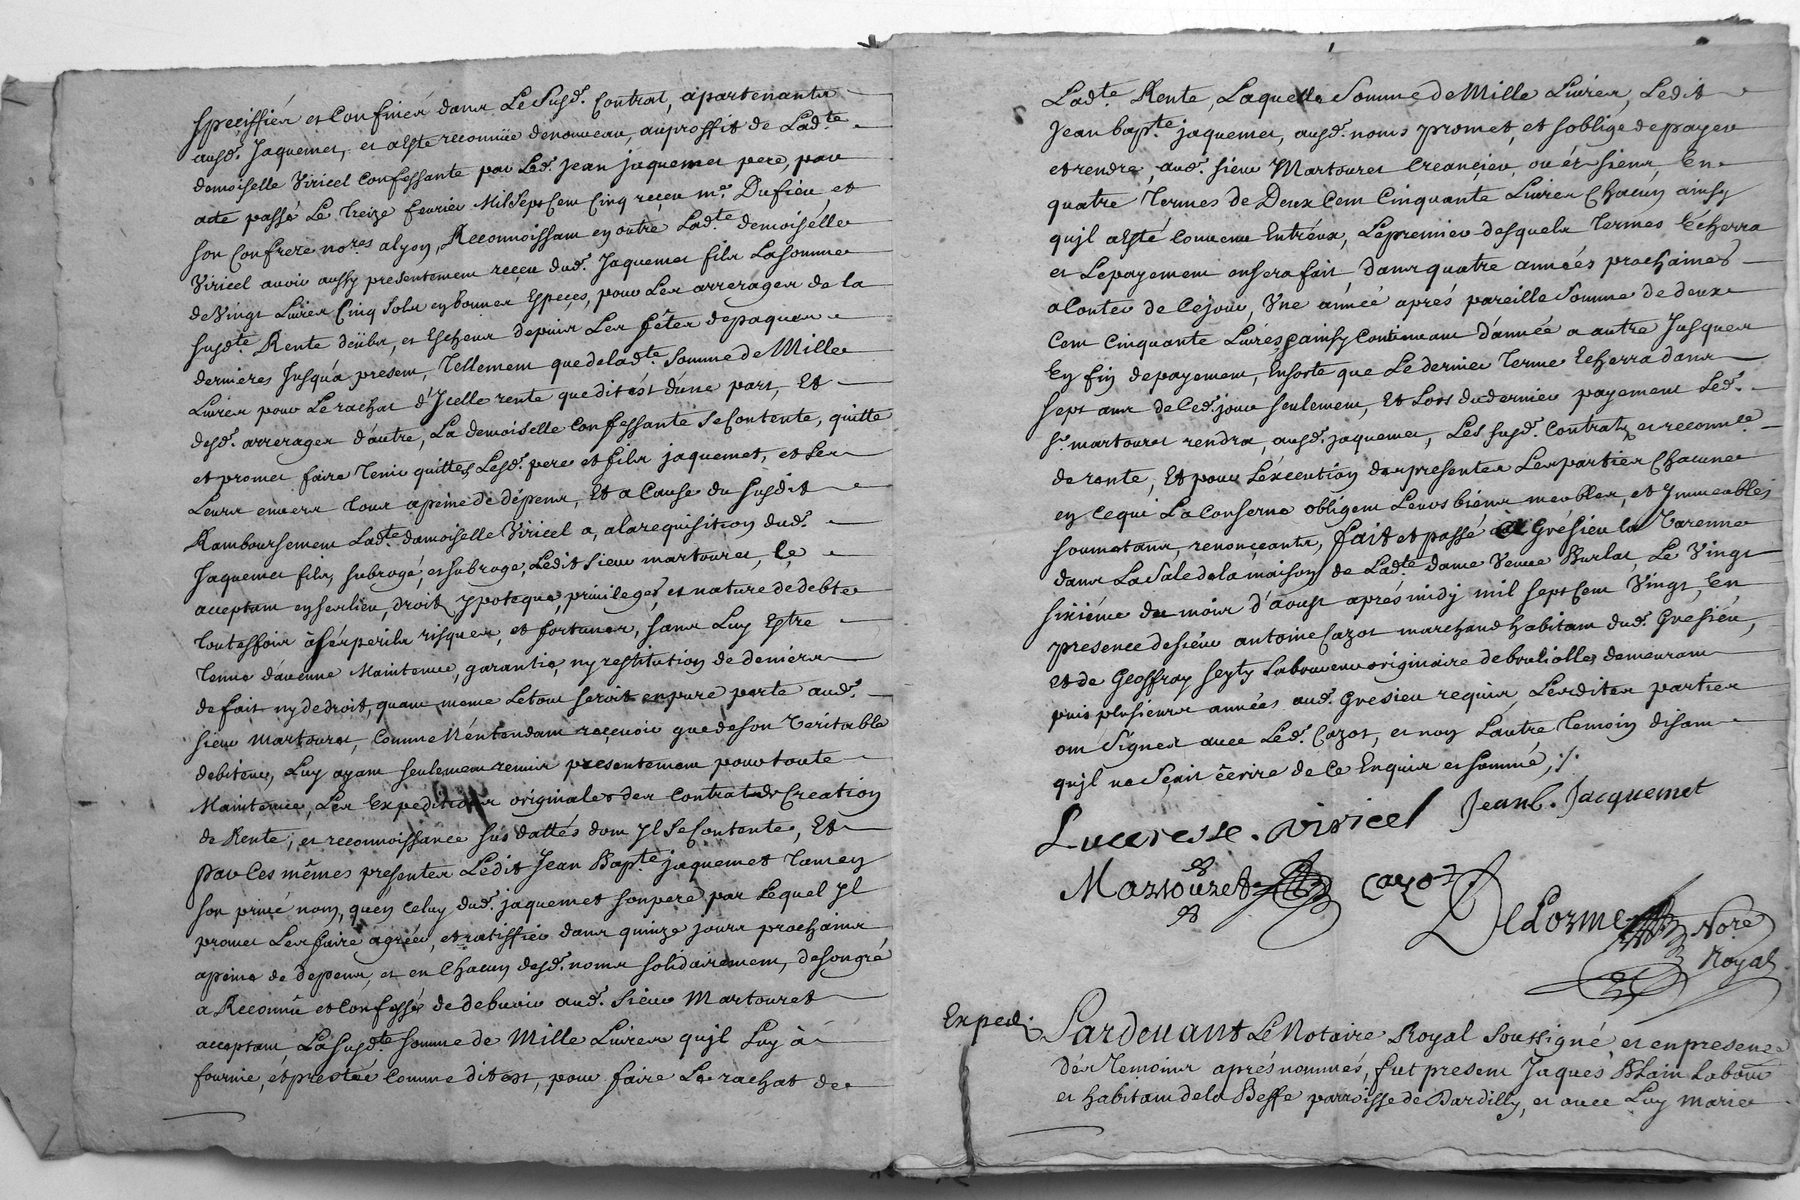 speciffiés et Confinés dans Le Susd. Contrat, apartenants
ausd. Jaquemet, et a esté reconnüe denouveau, auproffit de Lad.te
demoiselle Viricel Confessante par Led. Jean jaquemet pere, par
acte passé Le treize fevrier Mil Sept Cent Cinq reçeu m.e Dufieu, et
son Confrere no.res alyon, Reconnoissant en outre Lad.te demoiselle
Viricel avoir aussy presentement reçeu dud. Jaquemet fils La somme
de Vingt Livres Cinq Sols en bonnes Especes, pour Les arrerages de la
susd.te Rente deübs, et Escheus depuis Les fêtes depaques
dernieres Jusqu'a present, Tellement que delad.te Somme de Mille
Livres pour Le rachat d'Jcelle rente que dit est d'une part, Et
desd. arrerages d'autre, La demoiselle Confessante se Contente, quitte
et promet faire tenir quittes Lesd. pere et fils jaquemet, et Les
Leurs envers tous apeine de dépens, Et a Cause du susdit
Ramboursement Lad.te damoiselle Viricel a, alarequisition dud.
Jaquemet fils, subrogé, et subroge, Ledit sieur martouret, Le
acceptant en ses lieu, droit ypoteque, privileges, et nature de debte
toutesfois à ses perils risques, et fortunes, sans Luy Estre
tenue d'aucune Maintenue, garantie, ny restitution de deniers
de fait ny de droit, quant meme Le tout seroit en pure perte aud.
sieur Martouret, Comme N'entendant reçevoir que de son Veritable
debiteur, Luy ayant seulement remis presentement pour toute
Maintenue, Les Expeditions originales des Contrat de Creation
de Rente, et reconnoissance sus dattés dont Jl se Contente, Et
par Ces mêmes presentes Ledit Jean Bap.te jaquemet tant en
son privé nom, quen Celuy dud. jaquemet son pere par Lequel Jl
promet Les faire agréer, et ratiffier dans quinze jours prochains
apeine de depens, et en Chacun desd. noms solidairement, de son gré
a Reconnû et Confessé de debvoir aud. Sieur Martouret
acceptant La susd.te somme de Mille Livres qu'jl Luy à
fournie, et prestée Comme dit est, pour faire Le rachat de
Lad.te Rente, Laquelle Somme de Mille Livres, Ledit
Jean Bap.te jaquemet, ausd. noms promet, et s'oblige de payer
et rendre, aud. sieur Martouret Creancier, ou és siens, En
quatre termes de Deux Cent Cinquante Livres Chacun ainsy
qujl a esté Convenu Entr'eux, Le premier desquels termes Echerra
et Le payement en sera fait dans quatre années prochaines
a Conter de Ce jour, Une année aprés pareille Somme de deux
Cent Cinquante Livres, et ainsy Continuant d'année a autre Jusques
En fin de payement, En sorte que Le dernier terme Echerra dans
sept ans de Ced. jour seulement, Et Lors du dernier payement Led.
S.r martouret rendra, ausd. jaquemet, Les susd. Contrat, et reconn.ce
de rente, Et pour L'éxecution des presentes Les parties Chacune
en Cequi La Conserne obligent Leurs biens meubles, et Jmmeubles
soumetans, renonçeants, fait et passé a Grésieu la Varenne
dans La Sale de la maison de Lad.te dame Veuve Burlat, Le Vingt
sixiéme du mois d'aoust aprés midy mil Sept Cent Vingt, En
presence de sieur antoine Cazot marchand habitant dud. Grésieu,
Et de Geoffray Seyty Laboureur originaire de bouliolles demeurant
puis plusieurs années aud. Gresieu requis, Lesdites parties
ont Signes avec Led. Cazot, et non L'autre temoin disant
qujl ne Sçait écrire de Ce Enquis et sommé, ./.
Lucresse. Viricel Jean b. Jacquemet
Martouret Cazot
DeLorme Nore
Royal
Exped.
Pardevant Le Notaire Royal Soussigné et en presence
dés temoins aprés nommés, fut present Jaques Blain Labour
et habitant de la Beffe parroisse de Dardilly, et avec Luy marie